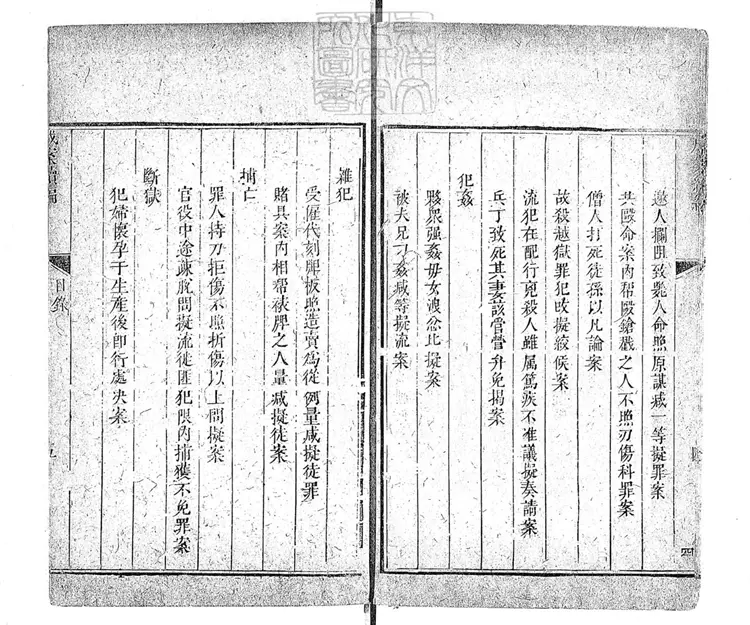 邀人攔阻致斃人命照原謀減一等擬罪案
共毆命案內帮毆鎗戳之人不照刃傷科罪案
僧人打死徒孫以凡論案
故殺越獄罪犯改擬絞候案
流犯在配行兇殺人雖属篤疾不准議擬奏請案
兵丁致死其妻該管營升免揭案
犯姦
夥眾强姦母女洩忿比擬案
被夫兄刁姦减等擬流案
四
雜犯
受雇代刻牌板照造賣為從例量减擬徒罪
賭具案內相帮裱牌之人量减擬徒案
捕亡
罪人持刀拒傷不照折傷以上問擬案
官役中途疎脫問擬流徒匪犯限內捕獲不免罪案
斷獄
犯婦懷孕于生產後即行處决案
目錄
五